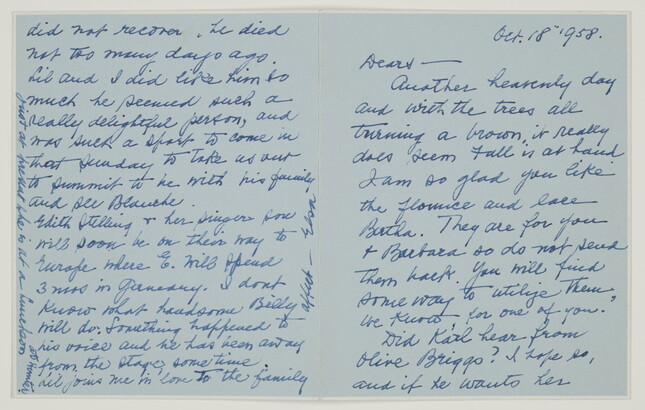 Oct. 18" 1958.
Dears —
Another heavenly day
and with the trees all
turning a brown, it really
does seem Fall is at hand
I am so glad you like
the flounce and lace
Bertha. They are for you
& Barbara so do not send
them back. You will find
some way to utilize them
we know, for one of you."
Did Karl hear from
Olive Briggs? I hope so,
and if he wants her
did not recover, he died
not too many days ago.
Lil and I did like him so
much he seemed such a
really delightful person, and
was such a sport to come in
that Sunday to take us out
to Summit to be with his family
and see Blanche.
Edith Stelling & her singer son
will soon be on their way to
Europe where E. will spend
3 mos in Germany. I dont
know what handsome Billy
will do. Something happened to
his voice and he has been away
from the stage, some time.
Lil joins me in love to the family
just at present she is at a luncheon
affect — Elsa